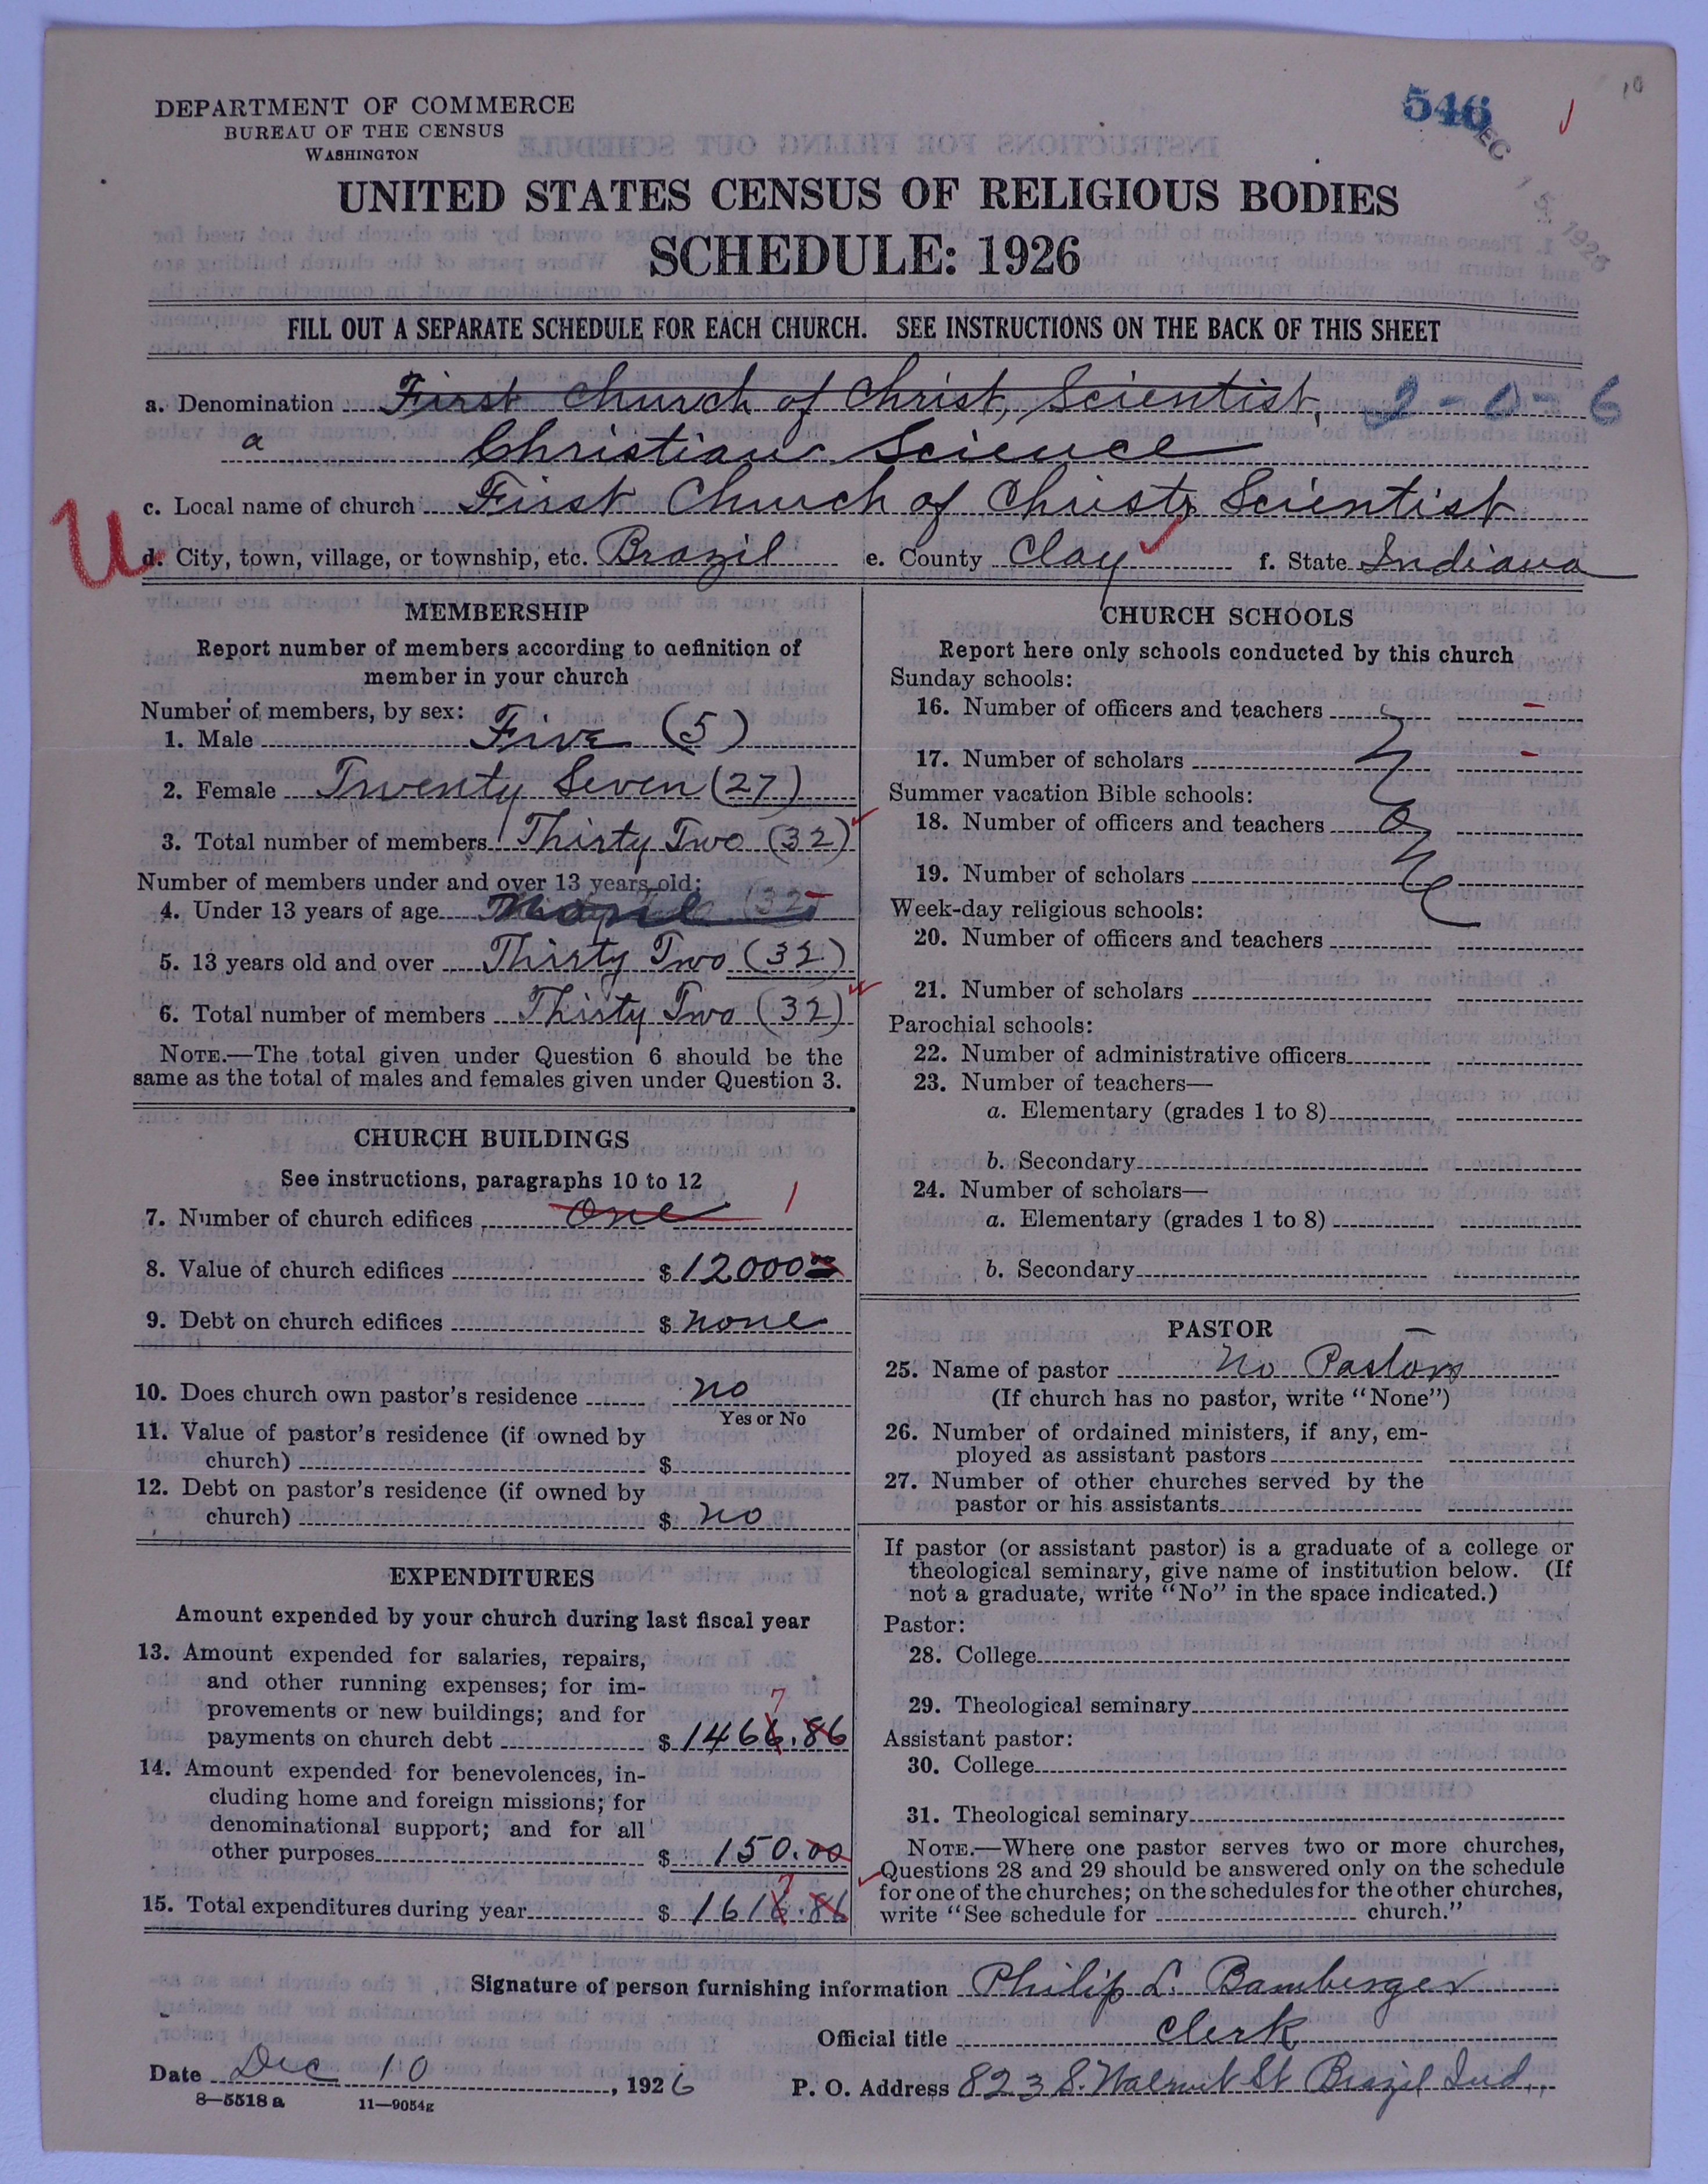 DEPARTMENT OF COMMERCE
BUREAU OF THE CENSUS
WASHINGTON
546
DEC 15 1926
UNITED STATES CENSUS OF RELIGIOUS BODIES
SCHEDULE: 1926
FILL OUT A SEPARATE SCHEDULE FOR EACH CHURCH. SEE INSTRUCTIONS ON THE BACK OF THIS SHEET
a. Denomination First Church of Christ, Scientist, 2-0-6
a Christian Science
c. Local name of church First Church of Christ, Scientist
U
d. City, town, village, or township, etc. Brazil e. County Clay f. State Indiana
MEMBERSHIP
Report number of members according to definition of
member in your church
Number of members, by sex:
1. Male Five (5)
2. Female Twenty Seven (27)
3. Total number of members Thirty Two (32)
Number of members under and over 13 years old:
4. Under 13 years of age
5. 13 years old and over Thirty Two (32)
6. Total number of members Thirty Two (32)
NOTE.—The total given under Question 6 should be the
same as the total of males and females given under Question 3.
CHURCH BUILDINGS
See instructions, paragraphs 10 to 12
7. Number of church edifices One 1
8. Value of church edifices $ 12000
9. Debt on church edifices $ none
10. Does church own pastor's residence no
Yes or No
11. Value of pastor's residence (if owned by
church) $
12. Debt on pastor's residence (if owned by
church) $ no
EXPENDITURES
Amount expended by your church during last fiscal year
13. Amount expended for salaries, repairs,
and other running expenses; for im-
provements or new buildings; and for
7
payments on church debt $ 1466.86
14. Amount expended for benevolences, in-
cluding home and foreign missions; for
denominational support; and for all
other purposes $ 150.00
7
15. Total expenditures during year $ 1616.86
CHURCH SCHOOLS
Report here only schools conducted by this church
Sunday schools:
16. Number of officers and teachers -
17. Number of scholars -
Summer vacation Bible schools:
18. Number of officers and teachers
19. Number of scholars
Week-day religious schools:
20. Number of officers and teachers
21. Number of scholars
Parochial schools:
22. Number of administrative officers
23. Number of teachers—
a. Elementary (grades 1 to 8)
b. Secondary
24. Number of scholars—
a. Elementary (grades 1 to 8)
b. Secondary
PASTOR
25. Name of pastor No Pastors
(If church has no pastor, write "None")
26. Number of ordained ministers, if any, em-
ployed as assistant pastors
27. Number of other churches served by the
pastor or his assistants
If pastor (or assistant pastor) is a graduate of a college or
theological seminary, give name of institution below. (If
not a graduate, write "No" in the space indicated.)
Pastor:
28. College
29. Theological seminary
Assistant pastor:
30. College
31. Theological seminary
NOTE.—Where one pastor serves two or more churches,
Questions 28 and 29 should be answered only on the schedule
for one of the churches; on the schedules for the other churches,
write "See schedule for church."
Signature of person furnishing information Philip L. Bamberger
Official title Clerk
Date Dec 10, 1926 P. O. Address 823 S. Walnut St Brazil Ind.
8—5518 a 11—9054g